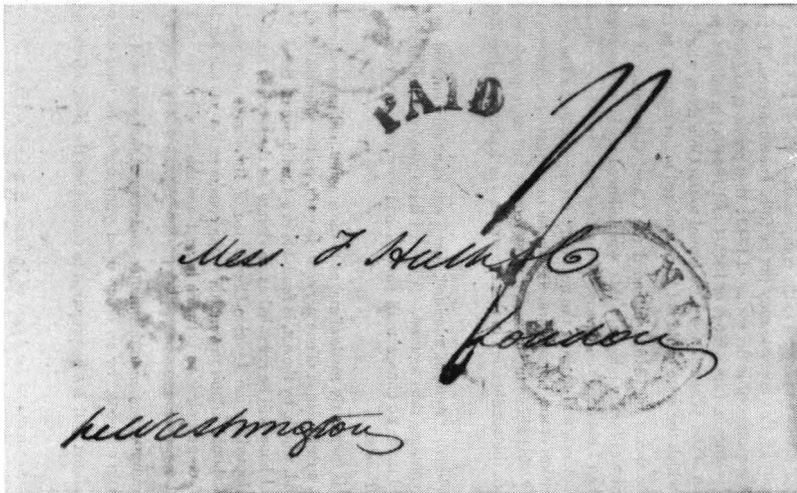 PAID
Mess. F. Huth & Co
London
pr Washington